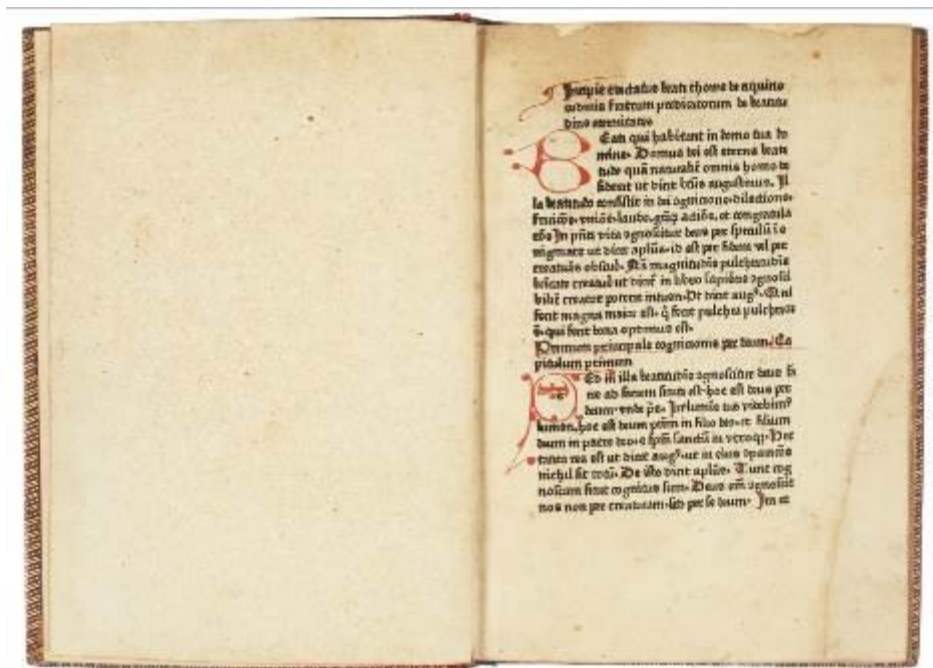 Incipit tractatus beati thome de aquino
ordinis fratrum predicatorum de beatitu
dine eternitatis
Beati qui habitant in domo tua do
mine. Domus dei est eterna beati
tudo quā naturalit̄ omnis homo
ut dicit bt̄us augustinus. Il
la beatitudo consistit in dei cognicione. dilectione.
laude.
In p̄nti vita cognoscitur deus per speculū ī e
nigmate ut dicit apl̄us. id est per fidem vel per
magnitudīs pulchritudīs
in libro sapiētie cognosci
creator potest Vt dicit augꝰ. Qui
fecit magna maior est. q̄ fecit pulchra pulchrior
ē. qui fecit bona optimus est.
Primum principale cognicionis per deum. Ca
pitulum primum
In illa beatitudīe cognoscitur deus
ne ad faciem sicuti est. hoc est deus per
deum. vnde p̄s. In lumīe tuo videbimꝰ
lumen. hoc est deum pr̄em in filio deo. et filium
deum in patre deo. et sp̄m sanctū in vtroqꝫ. Hec
tanta res est ut dicit augꝰ. ut in eius
nichil sit totū. De isto dicit apl̄us. Tunc cog
noscam sicut cognitus sum. Deus em̄ cognoscit
nos non per creaturam. sed per se deum. Ita et